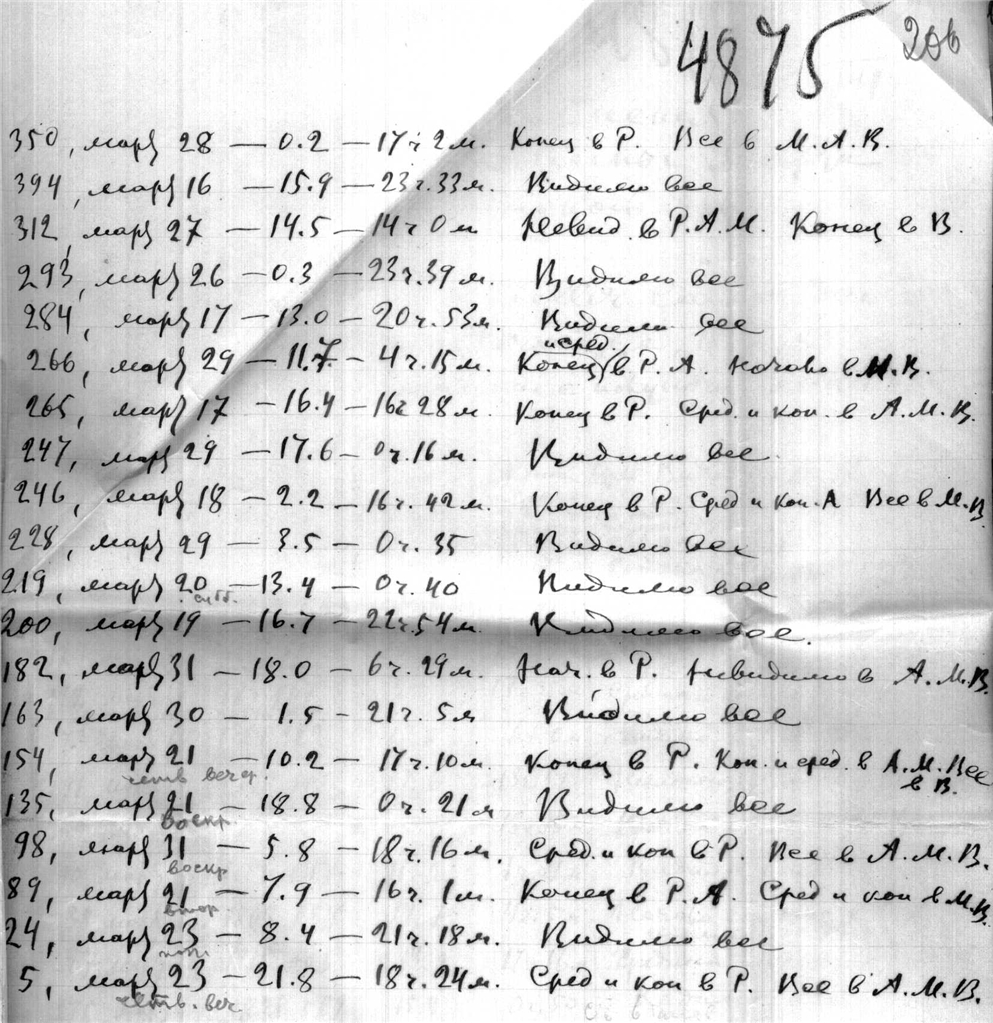 4875 206
350, март 28 — 0.2 — 17ч 2м. Конец в Р. Все в М.А.В.
394, март 16 — 15.9 — 23ч.33м. Видимо все
312, март 27 — 14.5 — 14ч 0м Невид. в Р.А.М. Конец в В.
293, март 26 — 0.3 — 23ч.39м. Видимо все
284, март 17 — 13.0 — 20ч.53м. Видимо все
и сред.
266, март 29 — 11.7 — 4ч.15м. Конец в Р. А. начало в М.В.
265, март 17 — 16.4 — 16ч 28м. Конец в Р. Сред. и кон. в А.М.В.
247, март 29 — 17.6 — 0ч.16м. Видимо все
246, март 18 — 2.2 — 16ч.42м. Конец в Р. Сред и кон. А Все в М.В.
228, март 29 — 3.5 — 0ч.35 Видимо все
219, март 20 — 13.4 — 0ч.40 Видимо все
субб.
200, март 19 — 16.7 — 22ч.54м. Видимо все.
182, март 31 — 18.0 — 6ч.29м. Нач. в Р. Невидимо в А.М.В.
163, март 30 — 1.5 — 21ч.5м Видимо все
154, март 21 — 10.2 — 17ч.10м. Конец в Р. Кон. и сред. в А.М. Все
четв вечер. в В.
135, март 21 — 18.8 — 0ч.21м Видимо все
воскр.
98, март 31 — 5.8 — 18ч.16м. Сред. и кон в Р. Все в А.М.В.
воскр
89, март 21 — 7.9 — 16ч.1м. Конец в Р.А. Сред и кон в М.В.
втор.
24, март 23 — 8.4 — 21ч.18м. Видимо все
5, март 23 — 21.8 — 18ч.24м. Сред и кон в Р. Все в А.М.В.
четв. веч